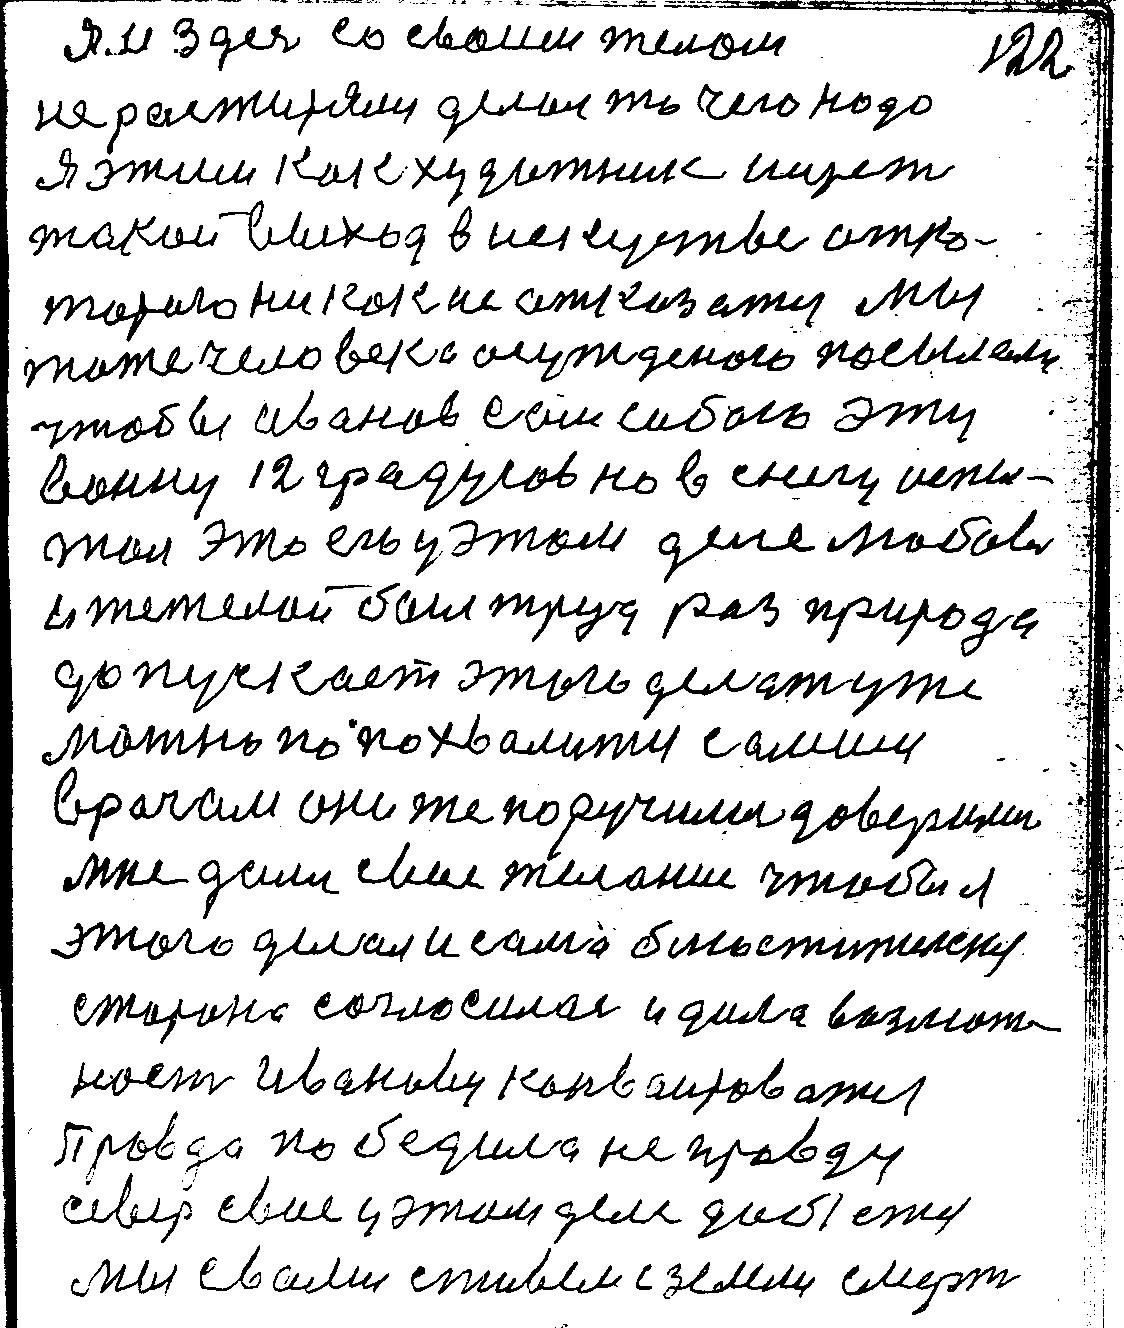 Я.И здея со своим телом 122
не растирялси делат то чего надо
я этим как художник ищет
такой выход в искустве от ко-
торого никак не отказатц мы
тоже человека осужденого посылали
чтобы иванов сам собою эту
войну 12 градусов но в снегу испы-
тал это его у этом деле любов
и тежелой был труд раз природа
допускает этого делат уже
можно по похвалити самим
врачам они же поручили доверили
мне дали свае желание чтобы я
этого делал и сама
сторона согласилас и дала возмож
ност Иванову конваироват
Правда победила не правду
север свае у этом деле
мы с вами с земли смерт